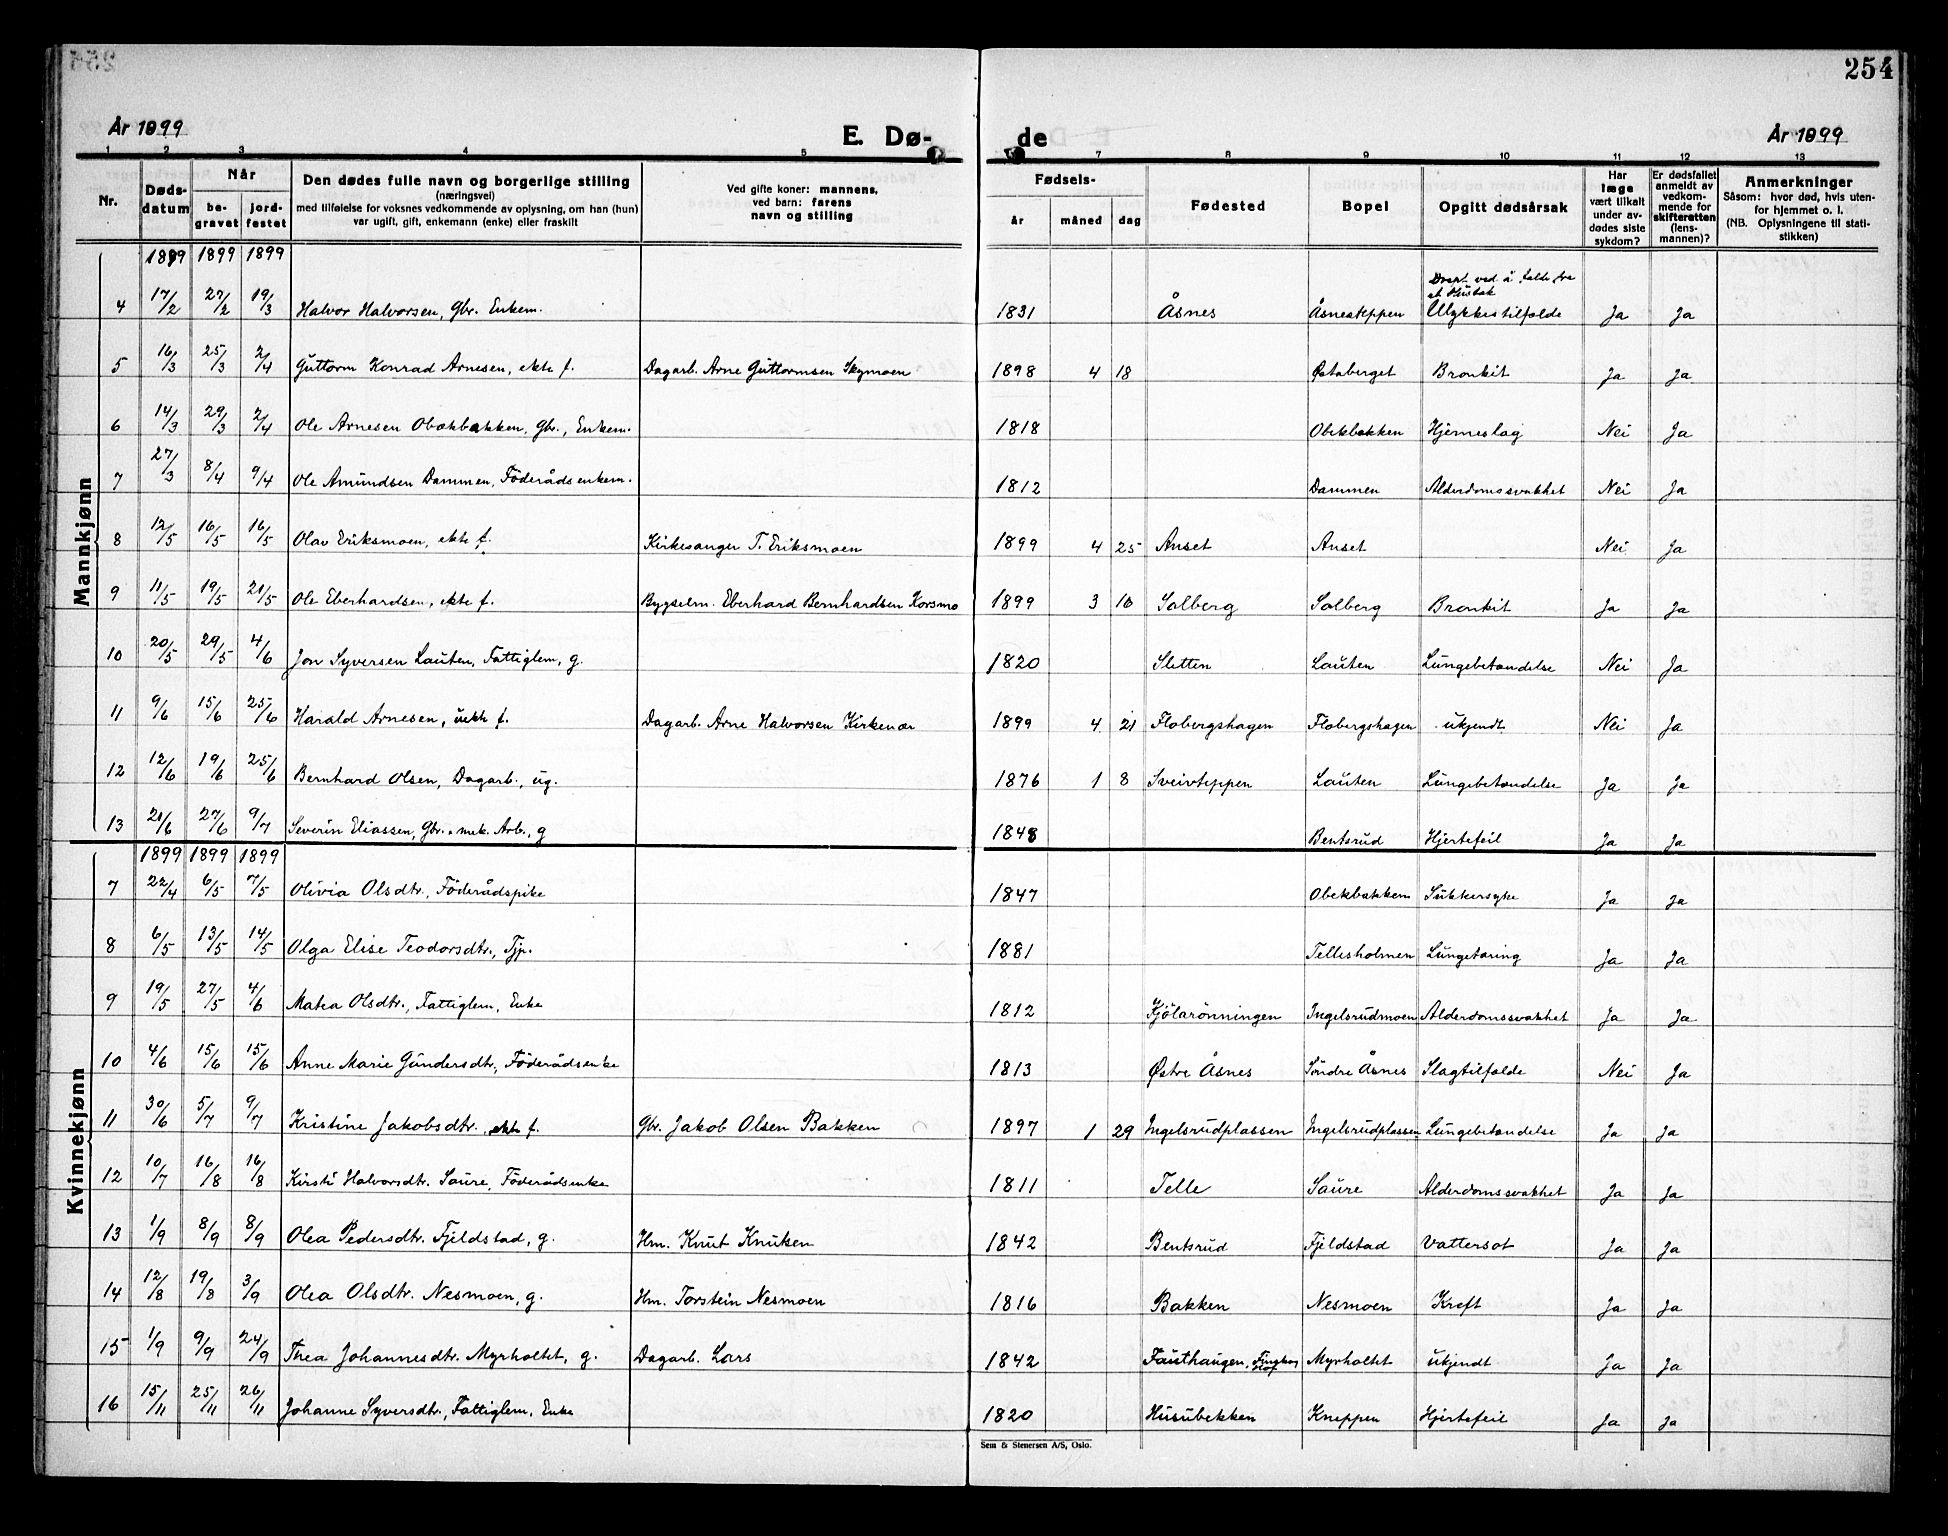 254
År 1899
E. Dø-
de
År 1899
1 2 3 4 5 7 8 9 10 11 12 13
Nr.
Døds-
datum
Når
be-
gravet
jord-
festet
Den dødes fulle navn og borgerlige stilling
(næringsvei)
med tilføielse for voksnes vedkommende av oplysning, om han (hun)
var ugift, gift, enkemann (enke) eller fraskilt
Ved gifte koner: mannens,
ved barn: farens
navn og stilling
Fødsels-
år måned dag
Fødested
Bopel
Opgitt dødsårsak
Har
læge
vært tilkalt
under av-
dødes siste
sykdom?
Er dødsfallet
anmeldt av
vedkom-
mende for
skifteretten
(lens-
mannen)?
Anmerkninger
Såsom: hvor død, hvis uten-
for hjemmet o. l.
(NB. Oplysningene til stati-
stikken)
Mannkjønn
1899 1899 1899
Drept ved å falde fra
et Hustak
4 17/2 27/2 19/3 Halvor Halvorsen, Gbr. Enkem. 1831 Åsnes Åsneseppen Ulykkestilfælde Ja Ja
5 16/3 25/3 2/4 Guttorm Konrad Arnesen, ekte f. Dagarb. Arne Guttormsen Skymoen 1898 4 18 Østaberget Bronkit Ja Ja
6 14/3 29/3 2/4 Ole Arnesen Obækbakken, Gbr., Enkem. 1818 Obekbakken Hjerneslag Nei Ja
7 27/3 8/4 9/4 Ole Amundsen Dammen, Föderådsenkem. 1812 Dammen Alderdomssvakhet Nei Ja
8 12/5 16/5 16/5 Olav Eriksmoen, ekte f. Kirkesanger T. Eriksmoen 1899 4 25 Anset Anset Nei Ja
9 11/5 19/5 21/5 Ole Eberhardsen, ekte f. Bygselm. Eberhard Bernhardsen Korsmo 1899 3 16 Solberg Solberg Bronkit Ja Ja
10 20/5 29/5 4/6 Jon Syversen Lauten, Fattiglem, g. 1820 Sletten Lauten Lungebetændelse Nei Ja
11 9/6 15/6 25/6 Harald Arnesen, uekte f. Dagarb. Arne Halvorsen Kirkenær 1899 4 21 Flobergshagen Flobergshagen ukjendt Nei Ja
12 12/6 19/6 25/6 Bernhard Olsen, Dagarb., ug. 1876 1 8 Sveivteppen Lauten Lungebetændelse Ja Ja
13 21/6 27/6 9/7 Severin Eliassen, Gbr. mek. Arb., g 1848 Bentsrud Hjertefeil Ja Ja
Kvinnekjønn
1899 1899 1899
7 22/4 6/5 7/5 Olivia Olsdtr., Föderådspike 1847 Obekbakken Sukkersyke Ja Ja
8 6/5 13/5 14/5 Olga Elise Teodorsdtr., Tjp. 1881 Tellesholmen Lungetæring Ja Ja
9 19/5 27/5 4/6 Matea Olsdtr., Fattiglem, Enke 1812 Kjölarönningen Ingelsrudmoen Alderdomssvakhet Ja Ja
10 4/6 15/6 15/6 Anne Marie Gundersdtr., Föderådsenke 1813 Østre Åsnes Söndre Åsnes Slagtilfælde Nei Ja
11 30/6 5/7 9/7 Kristine Jakobsdtr. ekte f. Gbr. Jakob Olsen Bakken 1897 1 29 Ingelsrudplassen Ingelsrudplassen Lungebetændelse Ja Ja
12 10/7 16/8 16/8 Kirsti Halvorsdtr. Saure, Föderådsenke 1811 Telle Saure Alderdomssvakhet Ja Ja
13 1/9 8/9 8/9 Olea Pedersdtr. Fjeldstad, g. Hm. Knut Knuken 1842 Bentsrud Fjeldstad Vattersot Ja Ja
14 12/8 19/8 3/9 Olea Olsdtr. Nesmoen, g. Hm. Torstein Nesmoen 1816 Bakken Nesmoen Kreft Ja Ja
15 1/9 9/9 24/9 Thea Johannesdtr. Myrholtet, g. Dagarb. Lars 1842 Fausthaugen, Myrholtet ukjendt Ja Ja
16 15/11 25/11 26/11 Johanne Syversdtr., Fattiglem, Enke 1820 Husubekken Kneppen Hjertefeil Ja Ja
Sem & Stenersen A/S, Oslo.